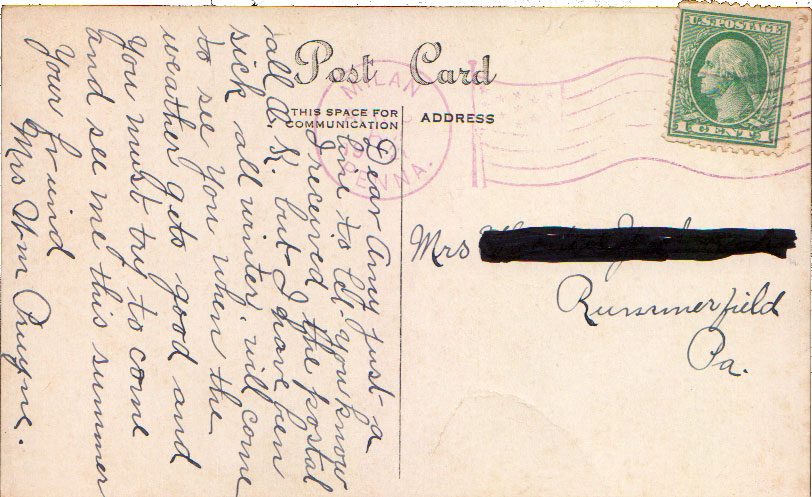 Post Card
THIS SPACE FOR
COMMUNICATION
ADDRESS
U.S. POSTAGE
1 CENT 1
MILAN
PENNA.
Mrs
Rummerfield
Pa.
Dear Amy just a
line to let you know
I received the postal
all O. K. but I have ben
sick all winter. will come
to see you when the
weather gets good and
You must try to come
and see me this summer
Your friend
Mrs Wm Pruyne.